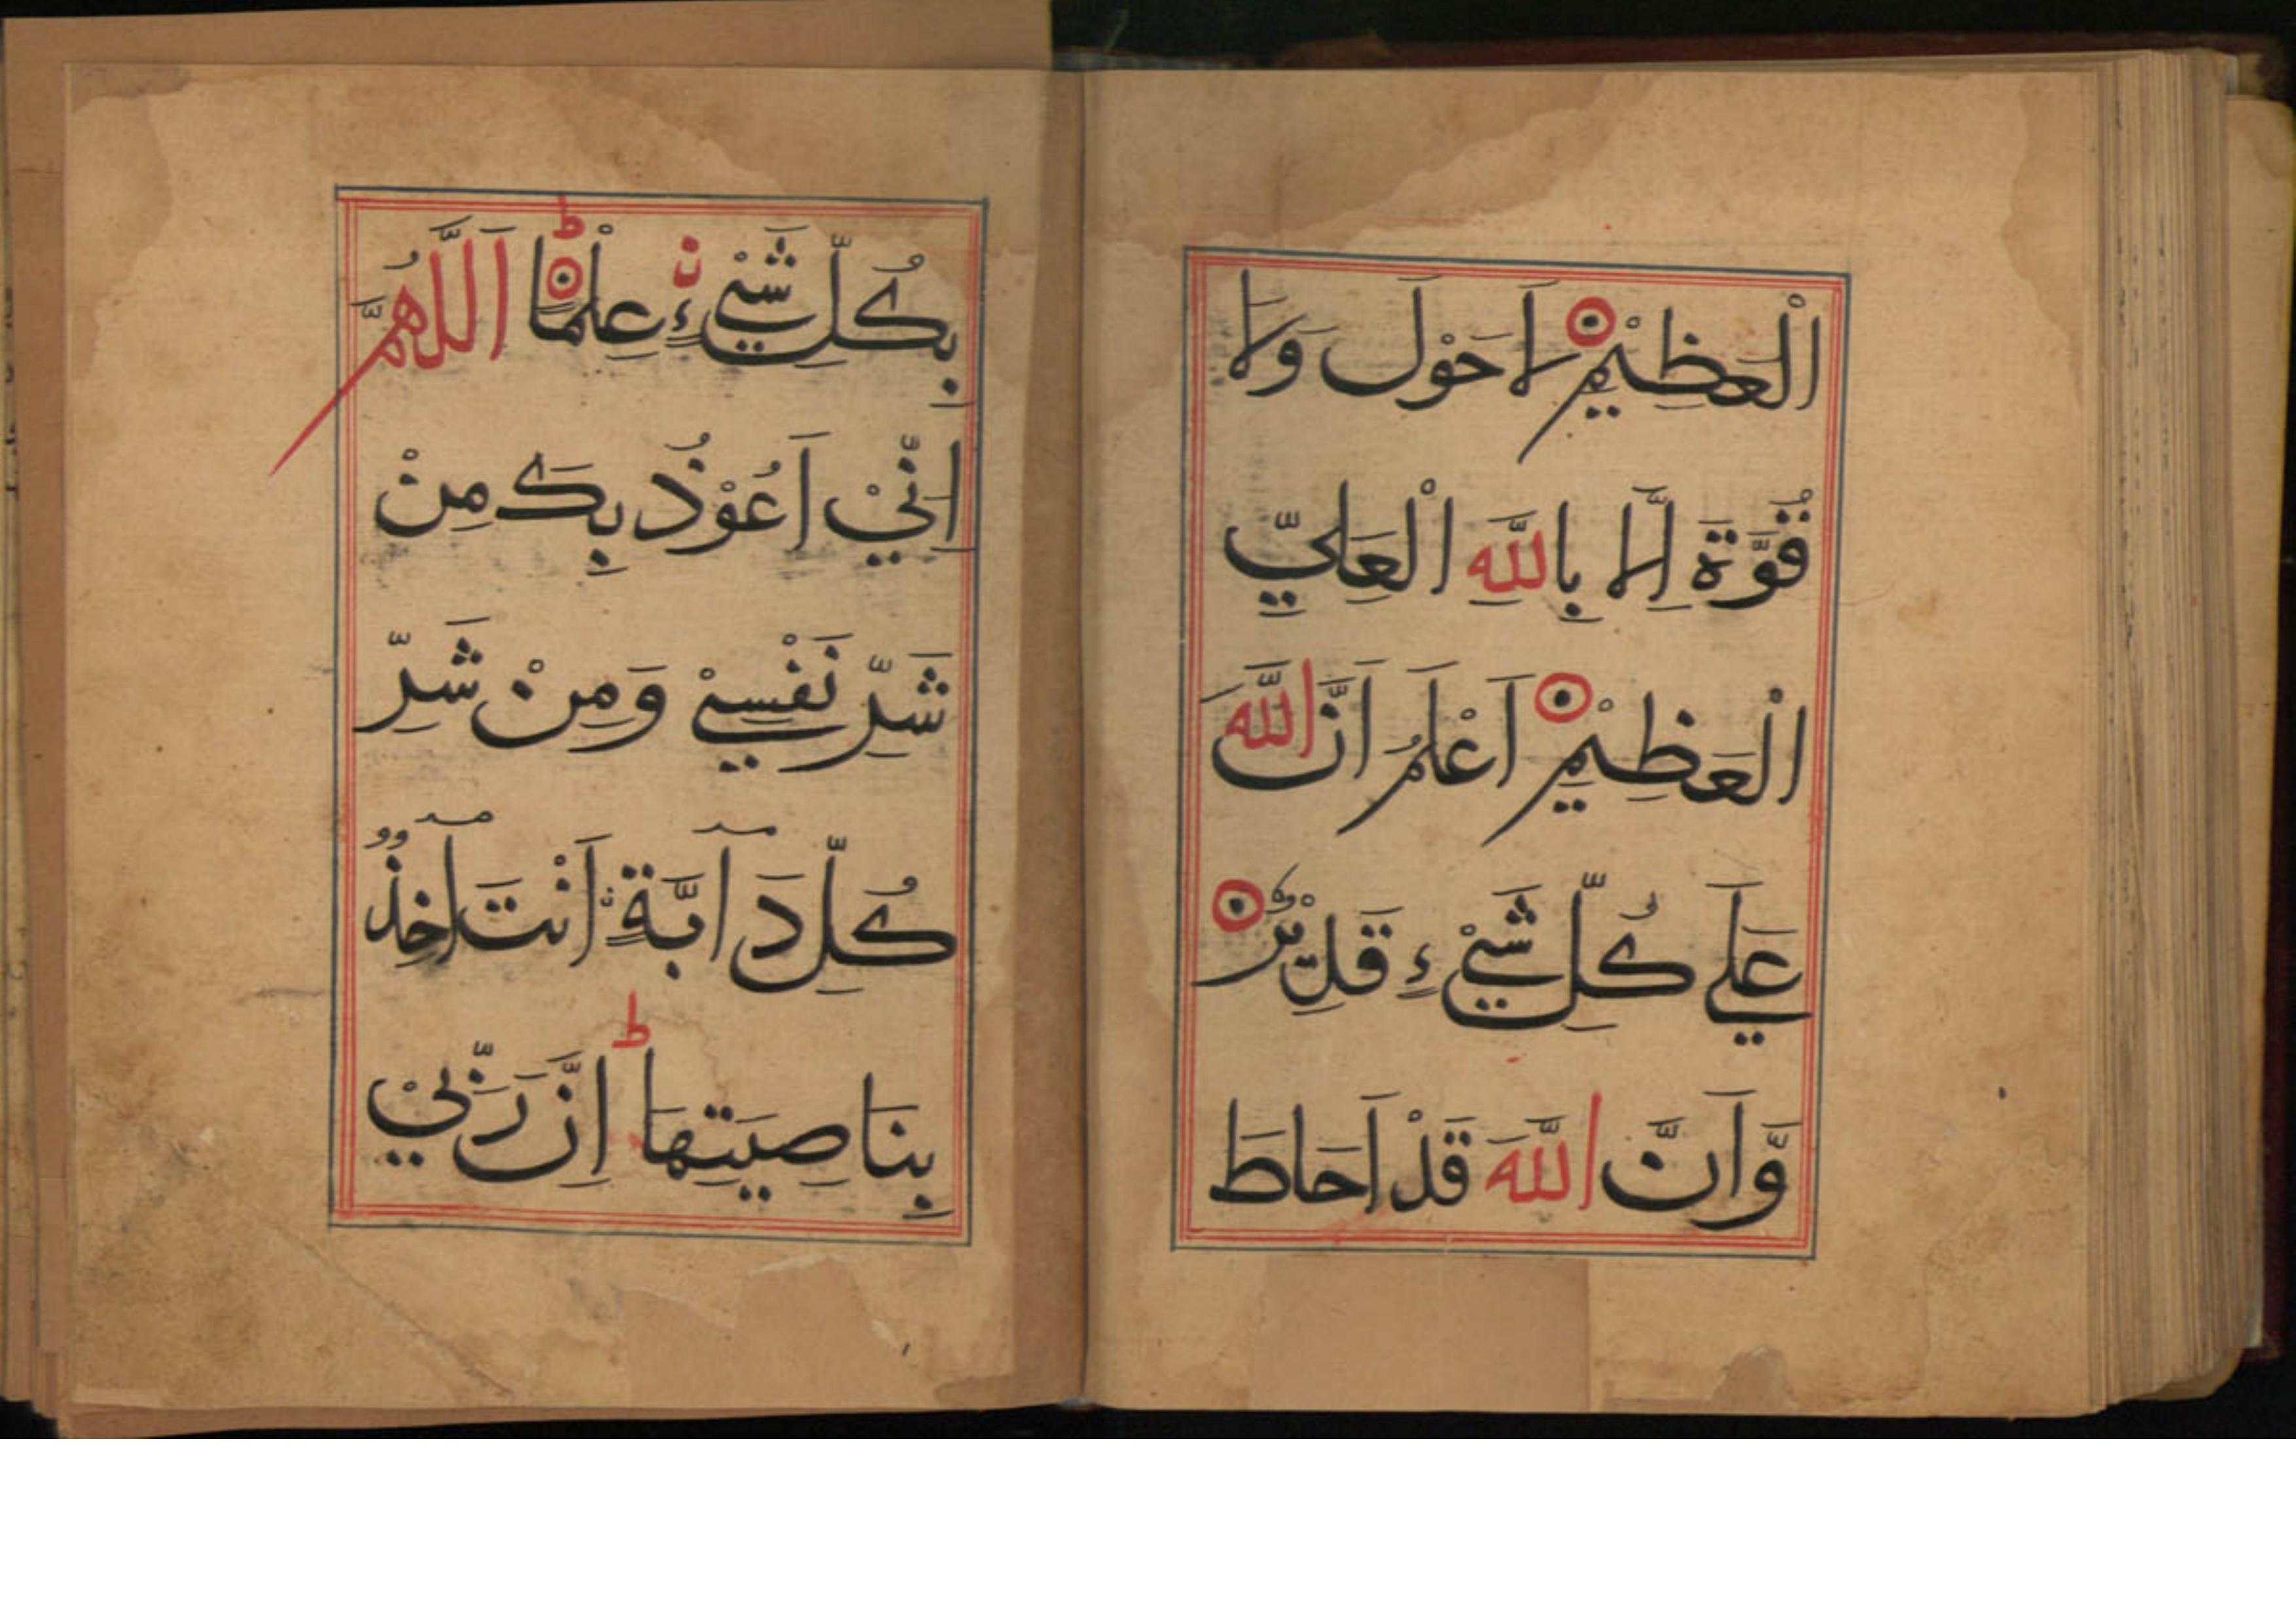 الْعَظِيْمِ لَاحَوْلَ وَلَا
قُوَّةَ اِلَّا بِاللّٰهِ الْعَلِيِّ
الْعَظِيْمِ اَعْلَمُ اَنَّ اللّٰهَ
عَلَي كُلِّ شَيْءٍ قَدِيْرٌ
وَّاَنَّ اللّٰهَ قَدْ اَحَاطَ
بِكُلِّ شَيْءٍ عِلْمًا اَللّٰهُمَّ
اِنِّيْ اَعُوْذُ بِكَ مِنْ
شَرِّ نَفْسِيْ وَمِنْ شَرِّ
كُلِّ دَآبَّةٍ اَنْتَ آخِذٌ
بِنَاصِيَتِهَا اِنَّ رَبِّيْ